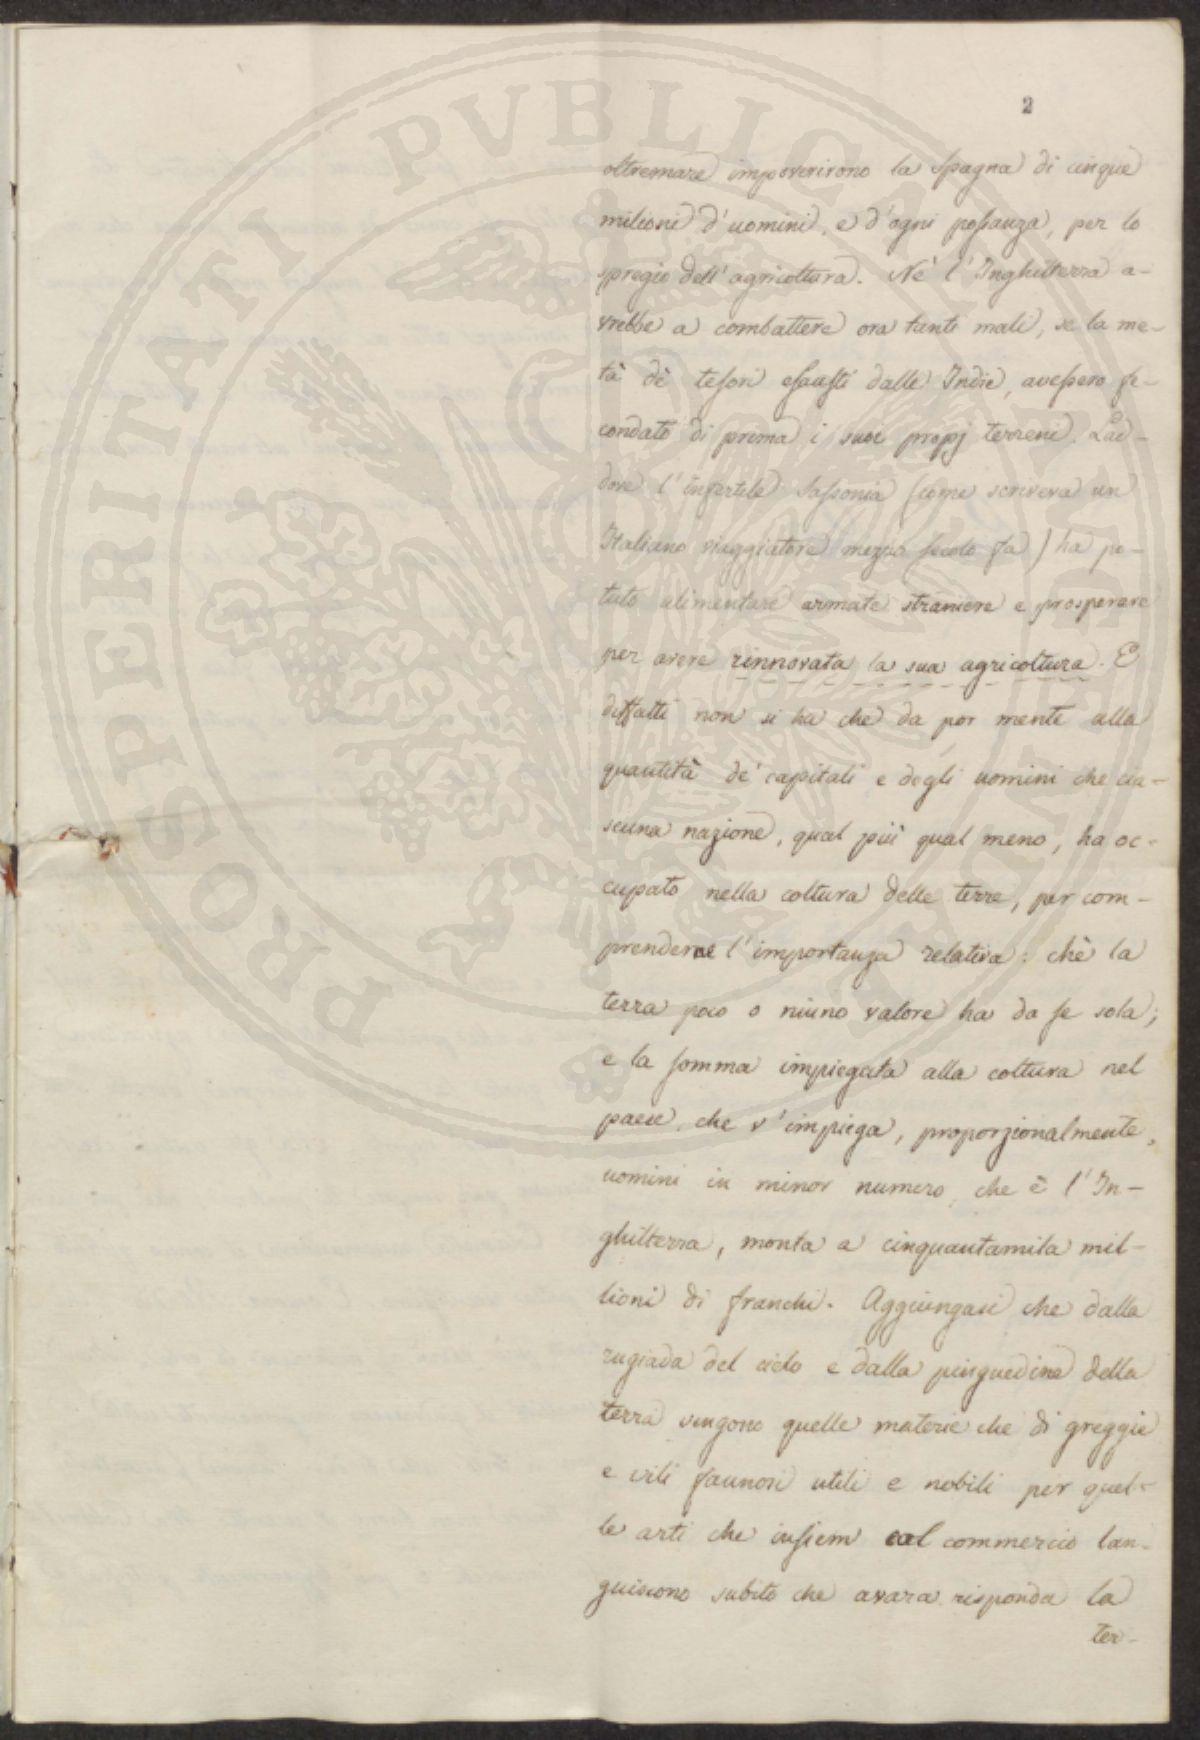 2
oltremare impoverirono la Spagna di cinque
milioni d'uomini, e d'ogni possanza, per lo
spregio dell'agricoltura. Nè l'Inghilterra a-
vrebbe a combattere ora tanti mali, se la me-
tà dè tesori esausti dalle Indie, avessero fe-
condato di prima i suoi propj terreni. Lad-
dove l'infertile Sassonia (come scriveva un
Italiano viaggiatore mezzo secolo fa) ha po-
tuto alimentare armate straniere e prosperare
per avere rinnovata la sua agricoltura. E
diffatti non si ha che da por mente alla
quantità de' capitali e degli uomini che cia-
scuna nazione, qual più qual meno, ha oc-
cupato nella coltura delle terre, per com-
prenderne l'importanza relativa: chè la
terra poco o niuno valore ha da se sola;
e la somma impiegata alla coltura nel
paese, che v'impiega, proporzionalmente,
uomini in minor numero, che è l'In-
ghilterra, monta a cinquantamila mil-
lioni di franchi. Aggiungasi che dalla
rugiada del cielo e dalla pinguedine della
terra vengono quelle materie che di greggie
e vili fannosi utili e nobili per quel-
le arti che insiem col commercio lan-
guiscono subito che avara risponda la
ter-
PROSPERITATI PVBLICAE AVGENDAE